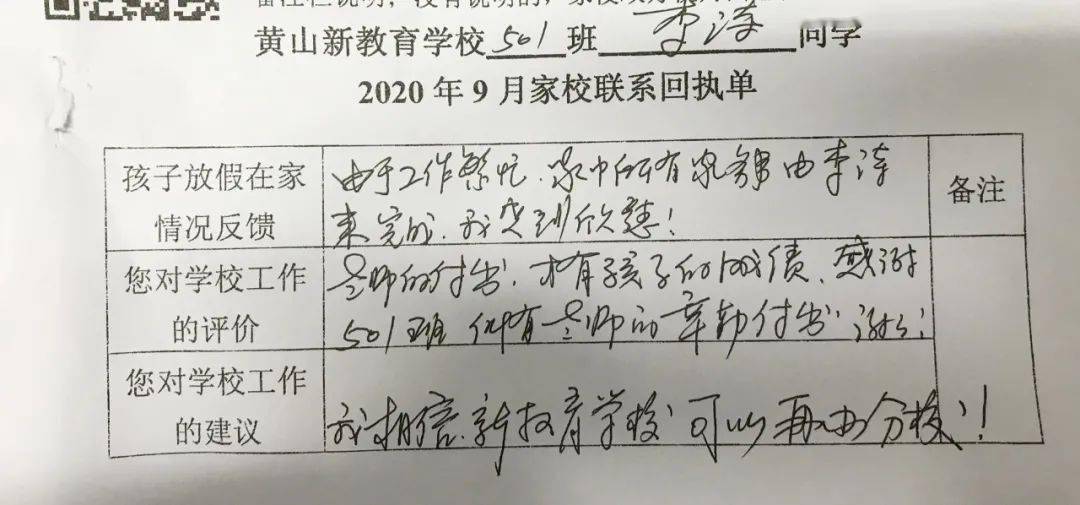 黄山新教育学校 501 班 李淳 同学
2020 年 9 月家校联系回执单
孩子放假在家
情况反馈
由于工作繁忙、家中所有家务由李淳
来完成、我感到欣慰!
备注
您对学校工作
的评价
老师的付出、才有孩子的成绩、感谢
501班所有老师的辛勤付出 谢谢!
您对学校工作
的建议
我相信、新教育学校 可以再办分校!